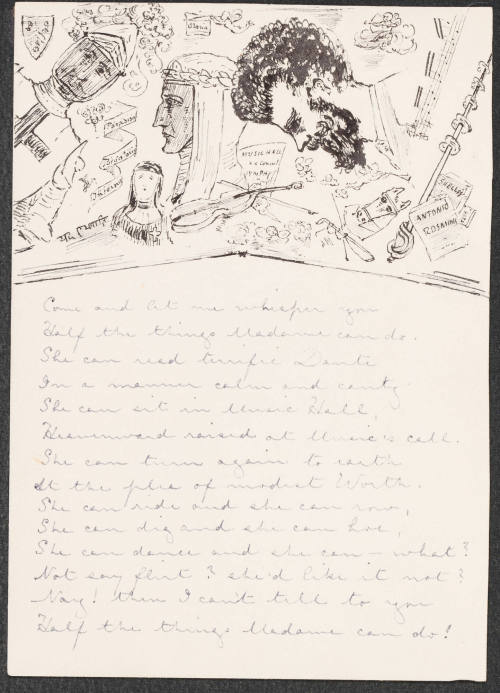 Gloria
Paradiso
Inferno
MUSIC HALL
ANTONIO
ROSMINI
Come and let me whisper you
Half the things Madame can do.
She can read terrific Dante
In a manner calm and canty
She can sit in Music Hall,
Heavenward raised at Music's call.
She can turn again to earth
At the plea of modest Worth.
She can ride and she can row,
She can dig and she can hoe,
She can dance and she can - what?
Not say flirt? she'd like it not?
Nay! then I can't tell to you
Half the things Madame can do!